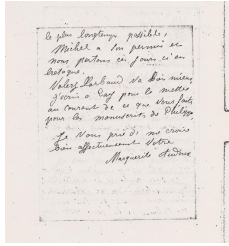 le plus longtemps possible,
Michel a son permis et
nous partons ces jours ci en
Bretagne.
Valery Larbaud va bien mieux
j'écris à Gay pour le mettre
au courant de ce que vous faites
pour les manuscrits de Philippe
Je vous prie de me croire
bien affectueusement votre
Marguerite Audoux